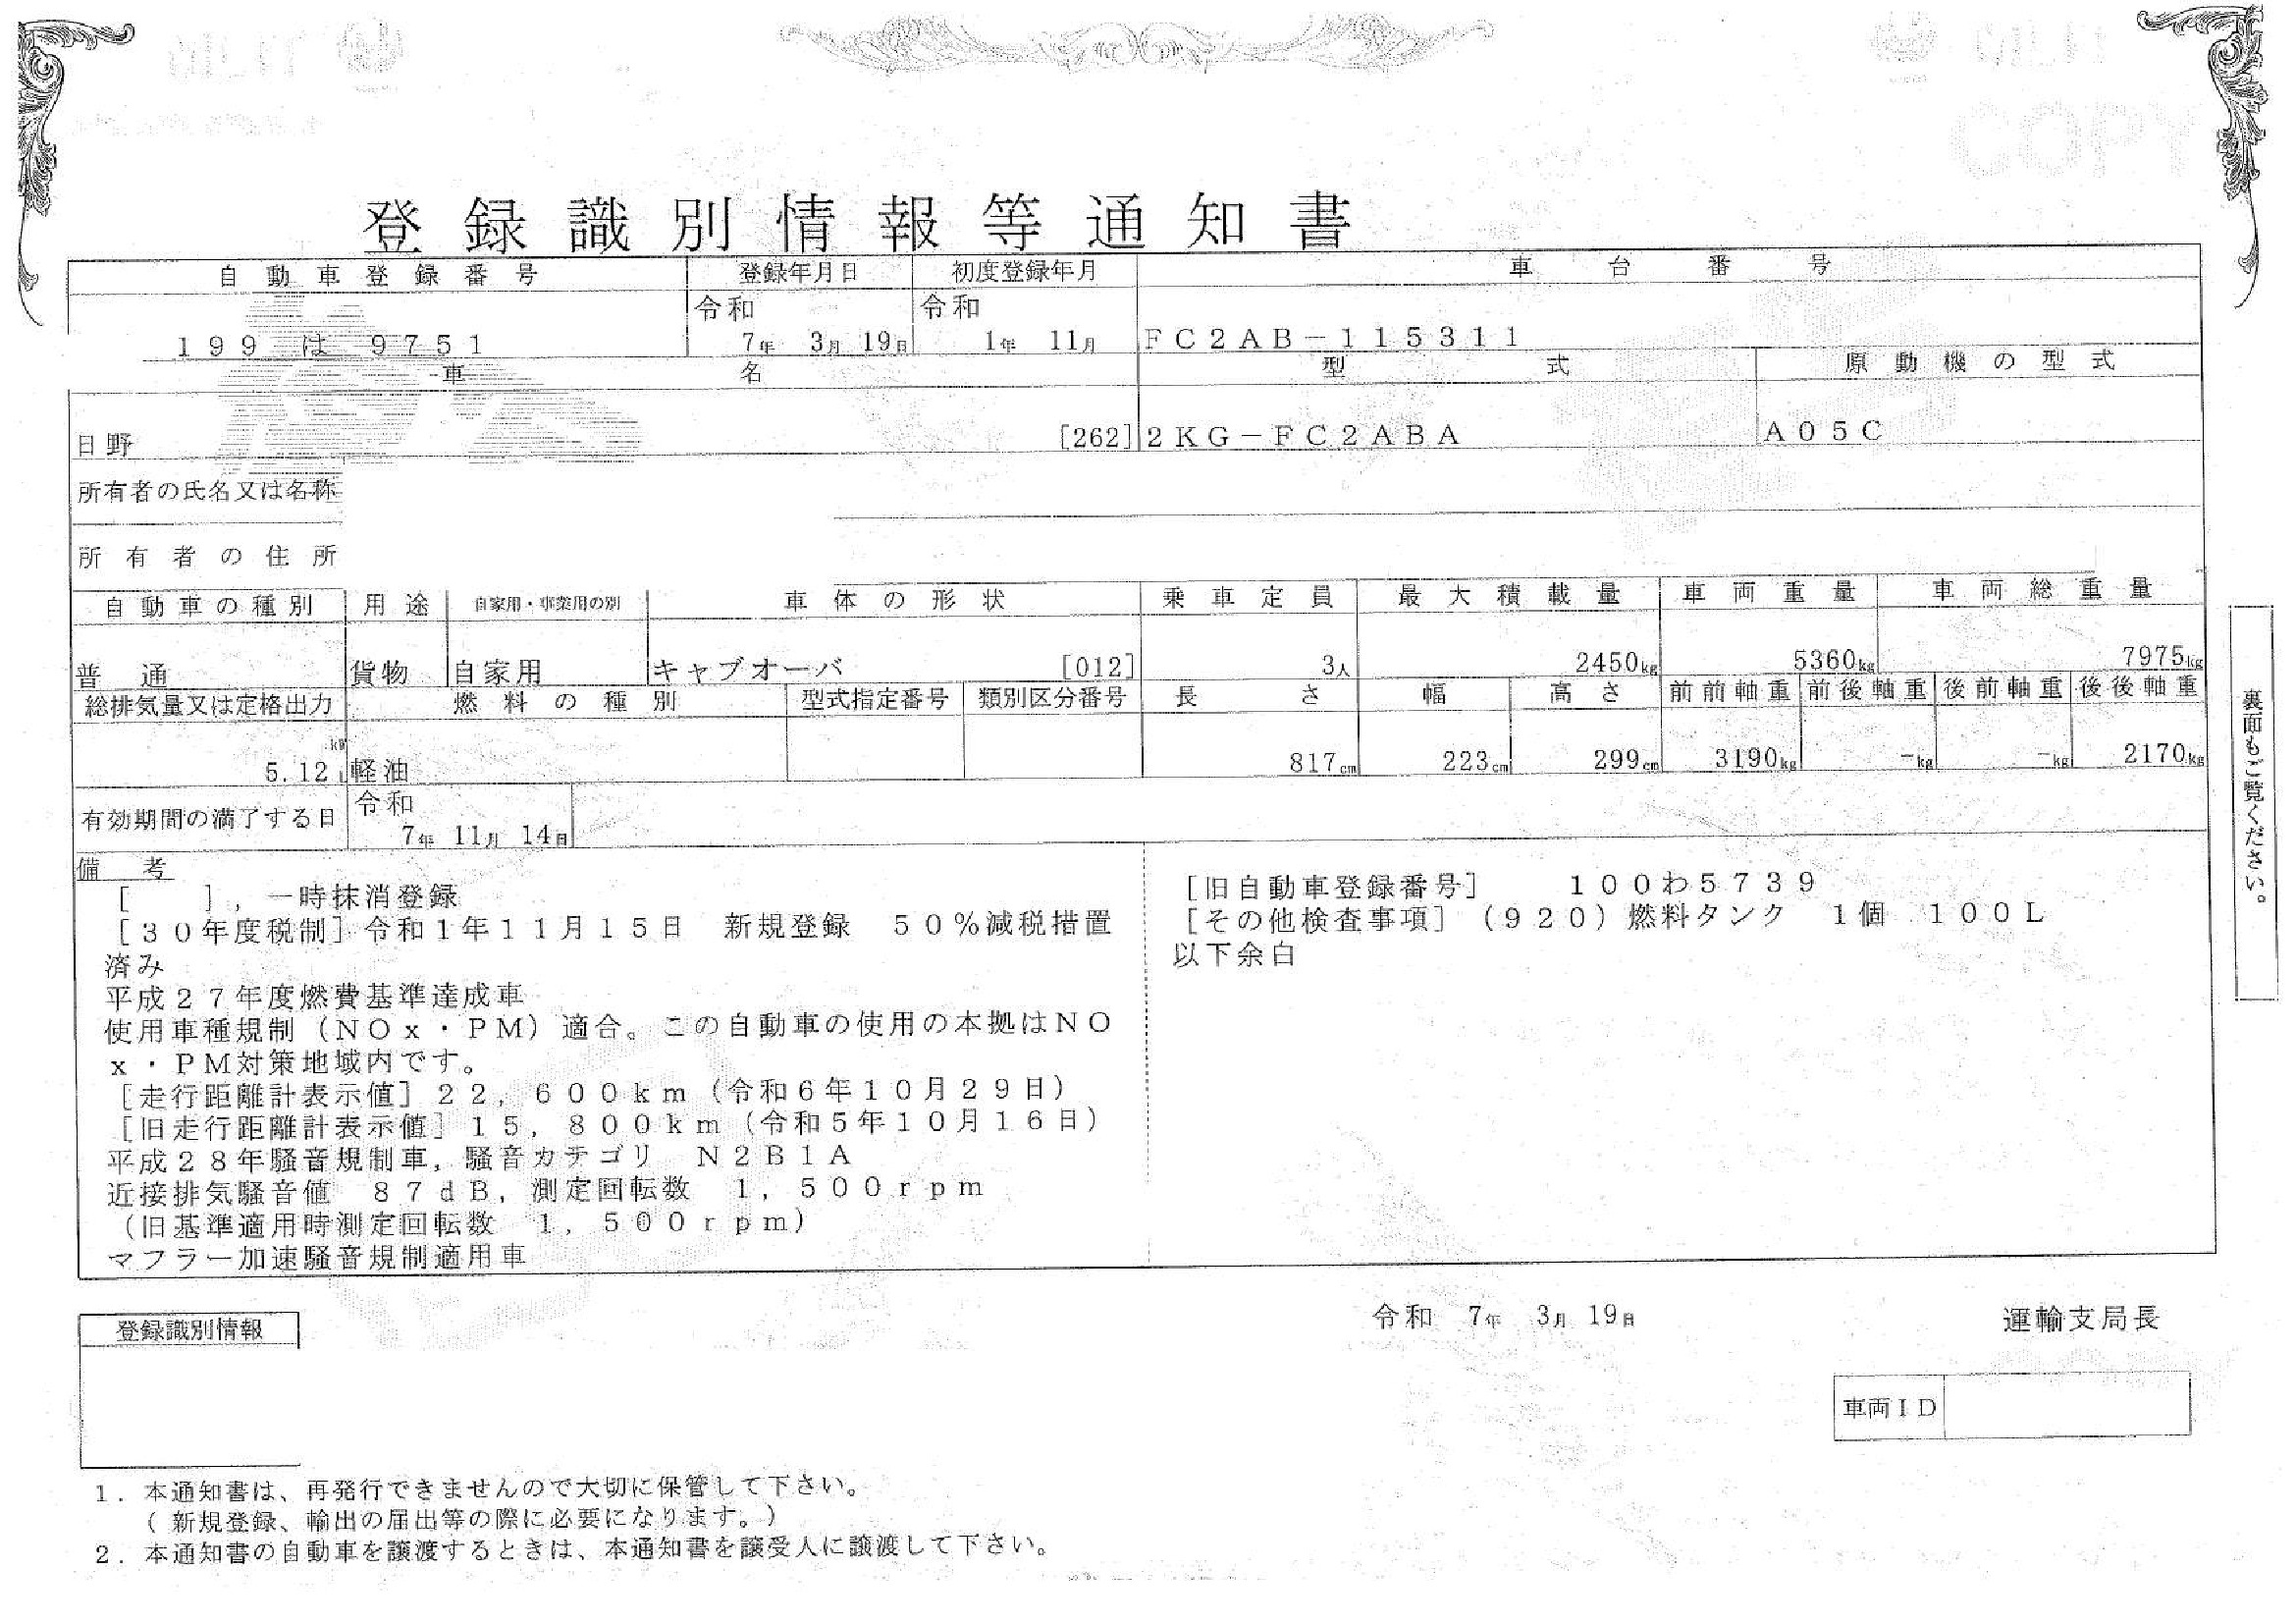 登録識別情報等通知書
自動車登録番号 登録年月日 初度登録年月 車台番号
令和 令和
199 は 9751 7年 3月 19日 1年 11月 FC2AB-115311
車名 型式 原動機の型式
日野 [262] 2KG-FC2ABA A05C
所有者の氏名又は名称
所有者の住所
自動車の種別 用途 自家用・事業用の別 車体の形状 乗車定員 最大積載量 車両重量 車両総重量
普通 貨物 自家用 キャブオーバ [012] 3人 2450kg 5360kg 7975kg
総排気量又は定格出力 燃料の種別 型式指定番号 類別区分番号 長さ 幅 高さ 前前軸重 前後軸重 後前軸重 後後軸重
kW
5.12 L 軽油 817cm 223cm 299cm 3190kg -kg -kg 2170kg
有効期間の満了する日 令和
7年 11月 14日
備考
[ ],一時抹消登録
[30年度税制]令和1年11月15日 新規登録 50%減税措置
済み
平成27年度燃費基準達成車
使用車種規制(NOx・PM)適合。この自動車の使用の本拠はNO
x・PM対策地域内です。
[走行距離計表示値]22,600km(令和6年10月29日)
[旧走行距離計表示値]15,800km(令和5年10月16日)
平成28年騒音規制車,騒音カテゴリ N2B1A
近接排気騒音値 87dB,測定回転数 1,500rpm
(旧基準適用時測定回転数 1,500rpm)
マフラー加速騒音規制適用車
[旧自動車登録番号] 100わ5739
[その他検査事項](920)燃料タンク 1個 100L
以下余白
裏面もご覧ください。
令和 7年 3月 19日 運輸支局長
登録識別情報
車両ID
1. 本通知書は、再発行できませんので大切に保管して下さい。
(新規登録、輸出の届出等の際に必要になります。)
2. 本通知書の自動車を譲渡するときは、本通知書を譲受人に譲渡して下さい。
COPY